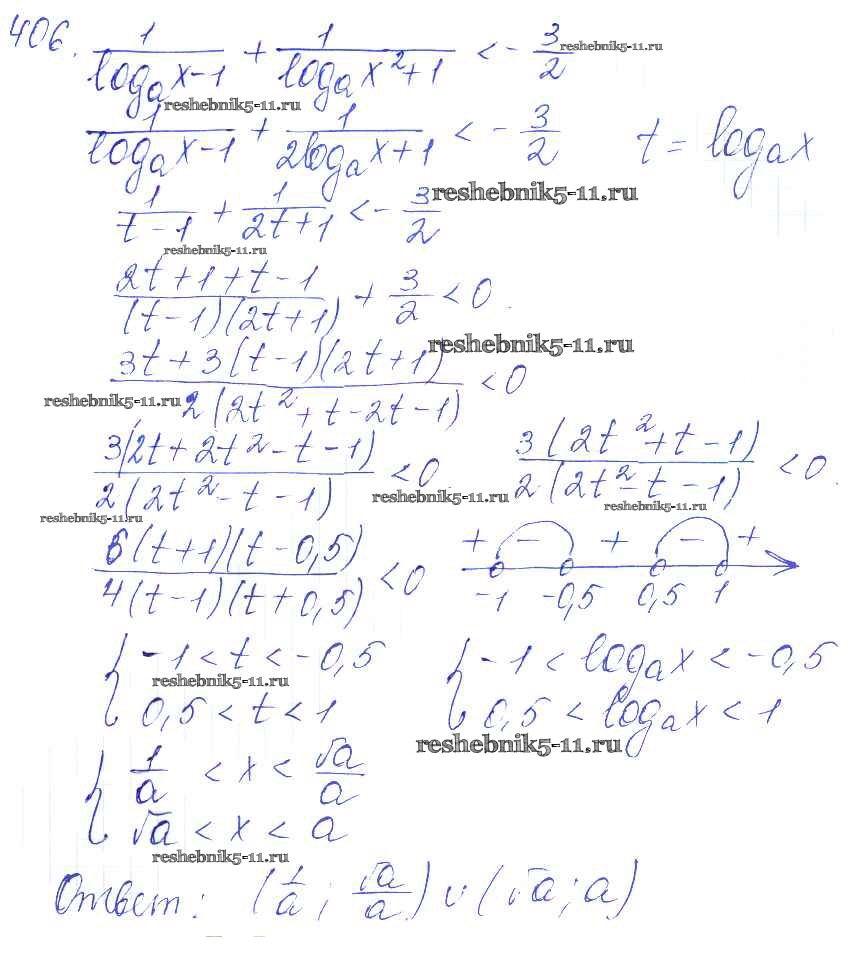 406. 1/(logₐx-1) + 1/(logₐx²+1) < - 3/2 reshebnik5-11.ru
reshebnik5-11.ru
1/(logₐx-1) + 1/(2logₐx+1) < - 3/2 t = logₐx
reshebnik5-11.ru
1/(t-1) + 1/(2t+1) < - 3/2
reshebnik5-11.ru
(2t+1+t-1)/((t-1)(2t+1)) + 3/2 < 0.
reshebnik5-11.ru
(3t+3(t-1)(2t+1))/(2(2t²+t-2t-1)) < 0
reshebnik5-11.ru
3(2t+2t²-t-1)/(2(2t²-t-1)) < 0 3(2t²+t-1)/(2(2t²-t-1)) < 0.
reshebnik5-11.ru reshebnik5-11.ru
reshebnik5-11.ru
6(t+1)(t-0,5)/(4(t-1)(t+0,5)) < 0 + - + - +
-1 -0,5 0,5 1
{ -1 < t < -0,5 { -1 < logₐx < -0,5
reshebnik5-11.ru
0,5 < t < 1 0,5 < logₐx < 1
reshebnik5-11.ru
{ 1/a < x < √a/a
√a < x < a
reshebnik5-11.ru
Ответ: (1/a; √a/a) ∪ (√a; a)